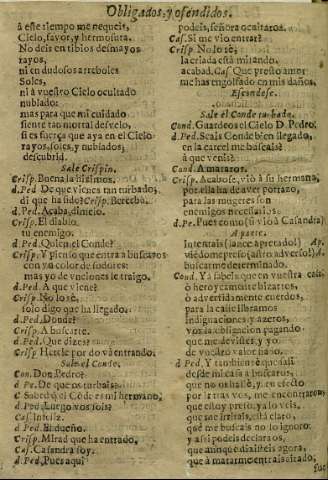 Obligados, y ofendidos.
à este tiempo me neguéis,
Cielo, favor, y hermosura.
No deis en tibios desmayos
rayos,
ni en dudosos arreboles
Soles,
ni à vuestro Cielo ocultado
nublado:
mas para que mi cuidado
siente tan mortal desvelo,
si es fuerça que aya en el Cielo
rayos, soles, y nublados,
descubrid.
Sale Crispin.
Crisp. Buena la hizimos.
d. Ped. De que vienes tan turbado,
di que ha sido? Crisp.
d. Ped. Acaba, dimelo.
Crisp. El diablo,
tu enemigo.
d. Ped. Quien, el Conde?
Crisp. Y pienso que entra a buscaros
con su color de sudores
mas yo de vnciones le traigo.
d. Ped. A que viene?
Crisp. No lo sè,
solo digo que ha llegado.
d. Ped. Donde?
Crisp. A buscarte.
d. Ped. Que dizes?
Crisp. Hetele por do và entrando.
Sale el Conde.
Con. Don Pedro?
d. Pe. De que os turbais?
C. Sabed q̃ el Cõde es mi hermano,
d. Ped. Luego vos sois?
Cas. Infeliz.
d. Ped. Si dueño.
Crisp. Mirad que ha entrado,
Cas. Casandra soy.
d. Ped. Pues aqui
podeis, señora ocultaros.
Cas. Si me vio entrar?
Crisp. No lo sè,
la criada està mirando,
acabad. Cas. Que presto amor
me has engolfado en mis daños.
Escondese.
Sale el Conde turbado.
Cond. Guardeos el Cielo D. Pedro.
d. Ped. Seais Conde bien llegado,
en la carcel me buscais?
à que venis?
Cond. A mataros.
Crisp. Acabose, viò à su hermana,
por ella ha de aver porrazo,
para las mugeres son
enemigos necessarios.
d. Pe. Pues como (si viò à Casandra)
A parte.
Intentais (lance apretado!) Ap.
viẽdome preso (astro adverso!) A.
buscarme determinado.
Cond. Ya sabeis que en vuestra
ò heroycamente bizarros,
ò advertidamente cuerdos,
para la calle libramos
indignaciones, y azeros,
vos la obligacion pagando
que me devisteis, y yo
de vuestro valor
d. Ped. Y tambien sè que sali
desde mi casa a buscaros,
que no os hallè, y en efecto
por letras vos, me encontraron
que estoy preso, ya lo veis,
que me irritais, està claro,
què me buscais no lo ignoro
y assi podeis declararos,
que aunque dilateis agora,
que à matarme entrais airado,